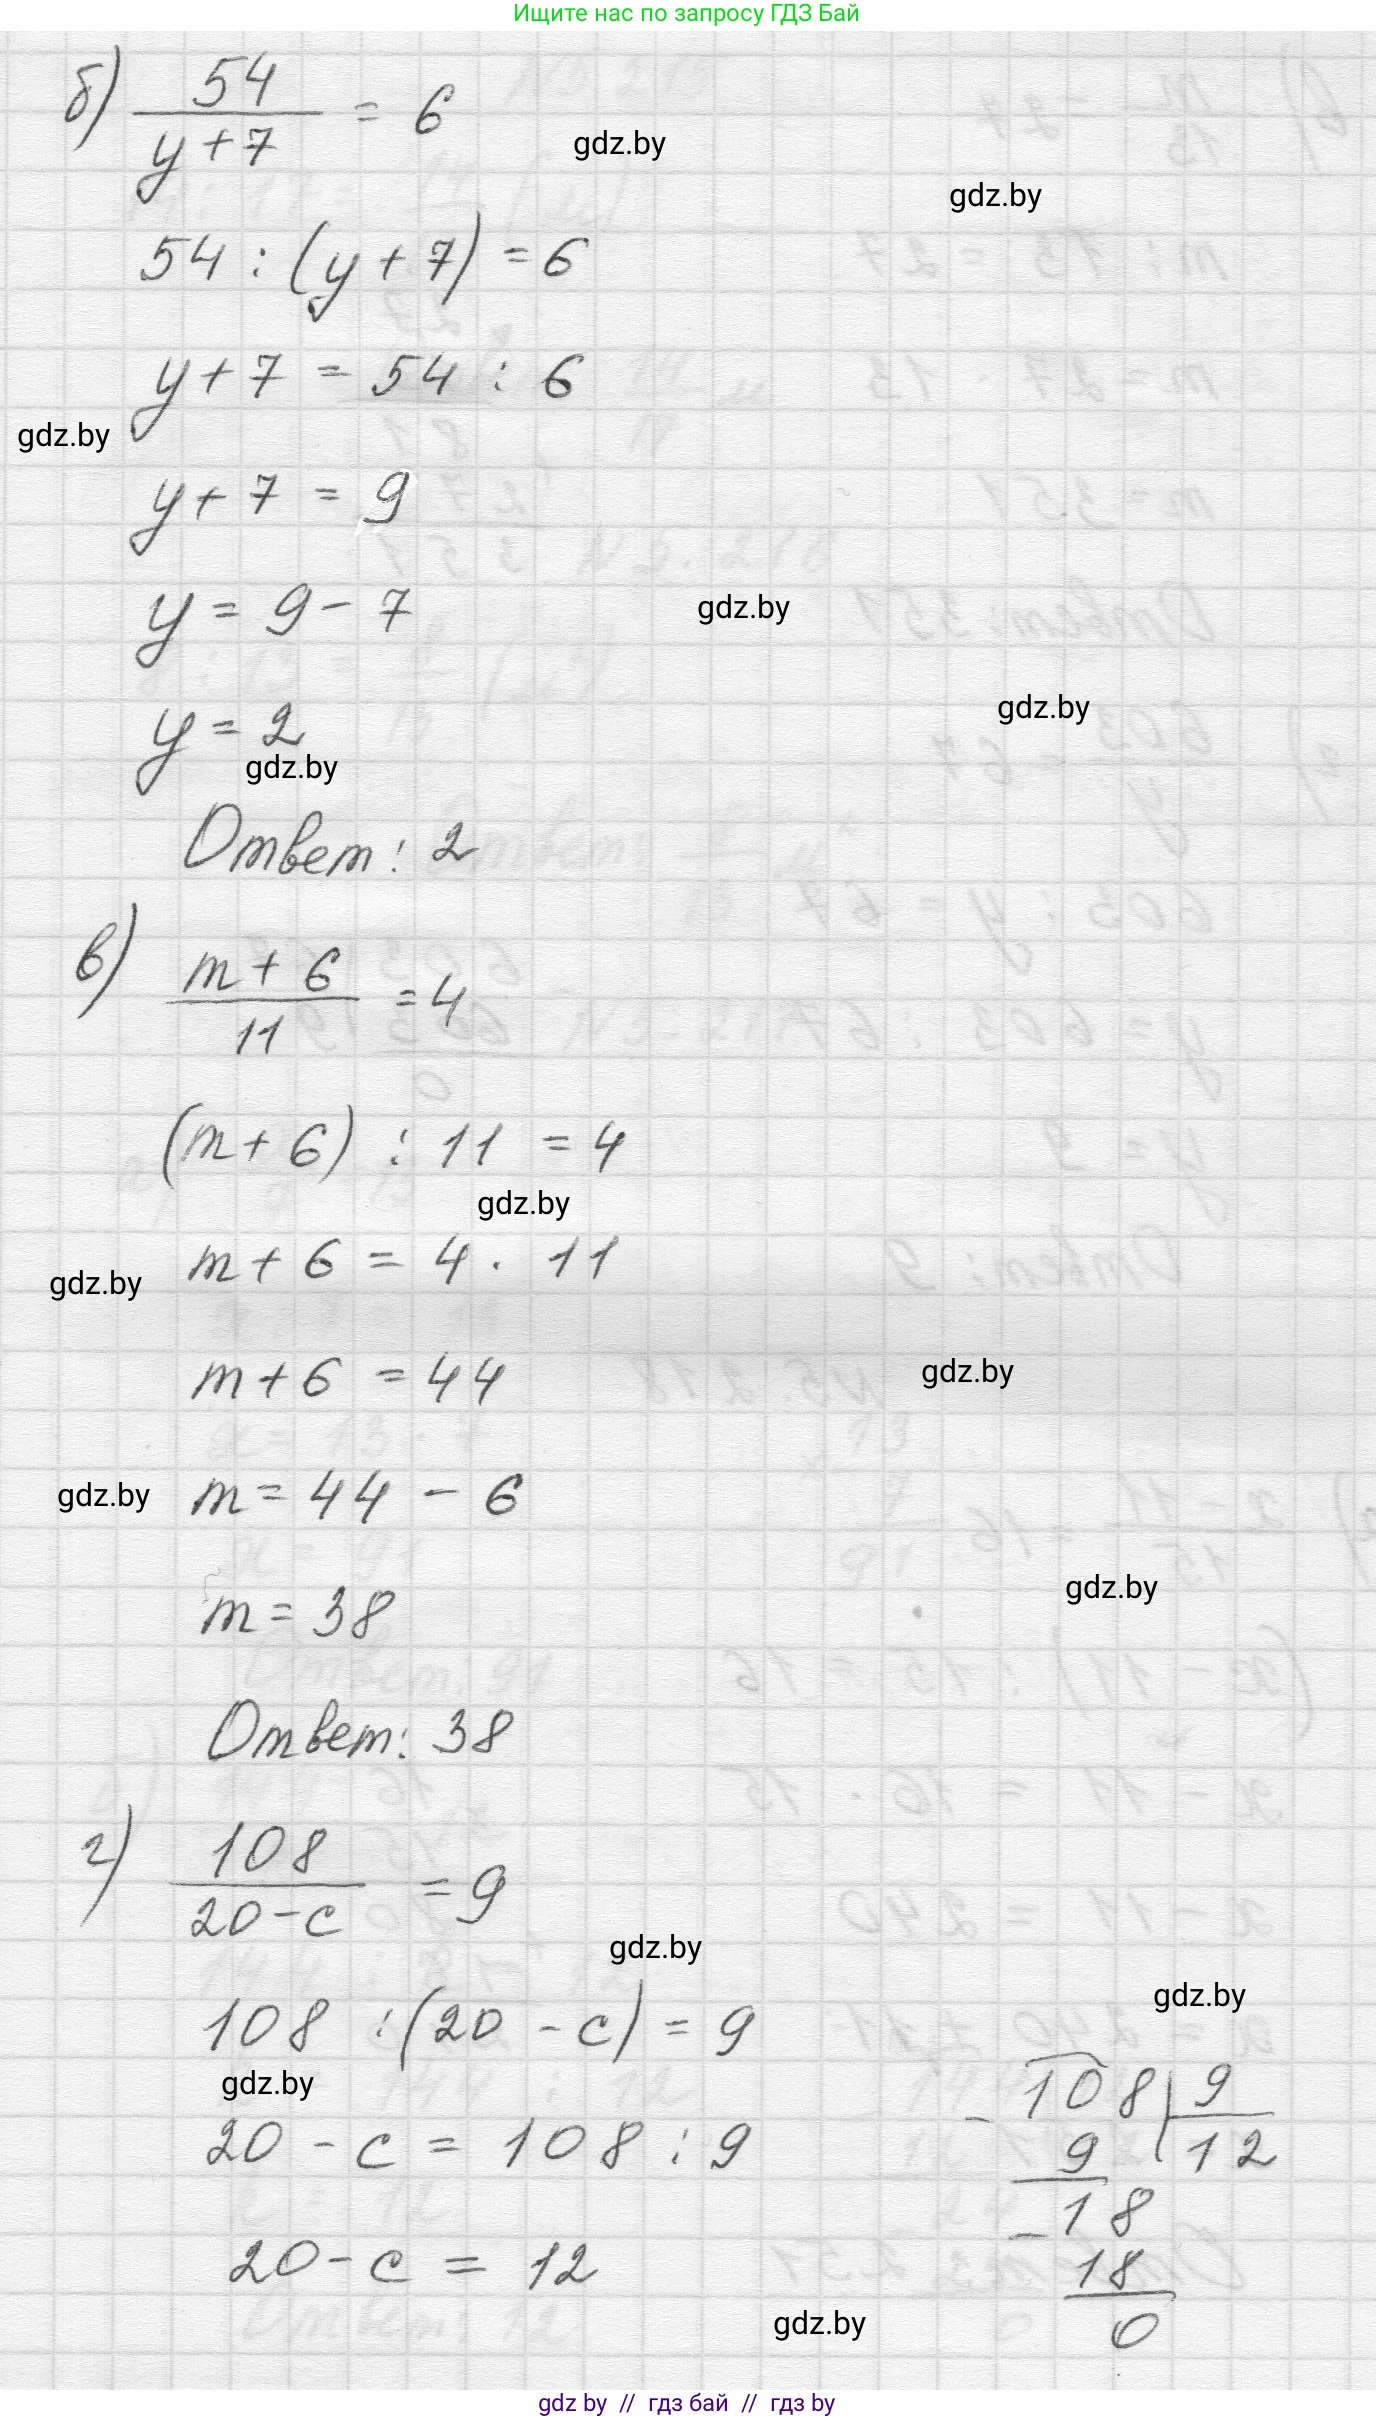 Ищите нас по запросу ГДЗ Бай
б) 54 / (y+7) = 6
gdz.by
gdz.by
54 : (y+7) = 6
y+7 = 54 : 6
gdz.by
y+7 = 9
y = 9 - 7
gdz.by
gdz.by
y = 2
gdz.by
Ответ: 2
в) (m+6) / 11 = 4
(m+6) : 11 = 4
gdz.by
m+6 = 4 · 11
gdz.by
m+6 = 44
gdz.by
m = 44 - 6
gdz.by
gdz.by
m = 38
Ответ: 38
г) 108 / (20-c) = 9
gdz.by
gdz.by
108 : (20 - c) = 9
gdz.by
20 - c = 108 : 9
20 - c = 12
- 108 | 9
9 | 12
- 18
18
0
gdz.by
gdz by // гдз бай // гдз by